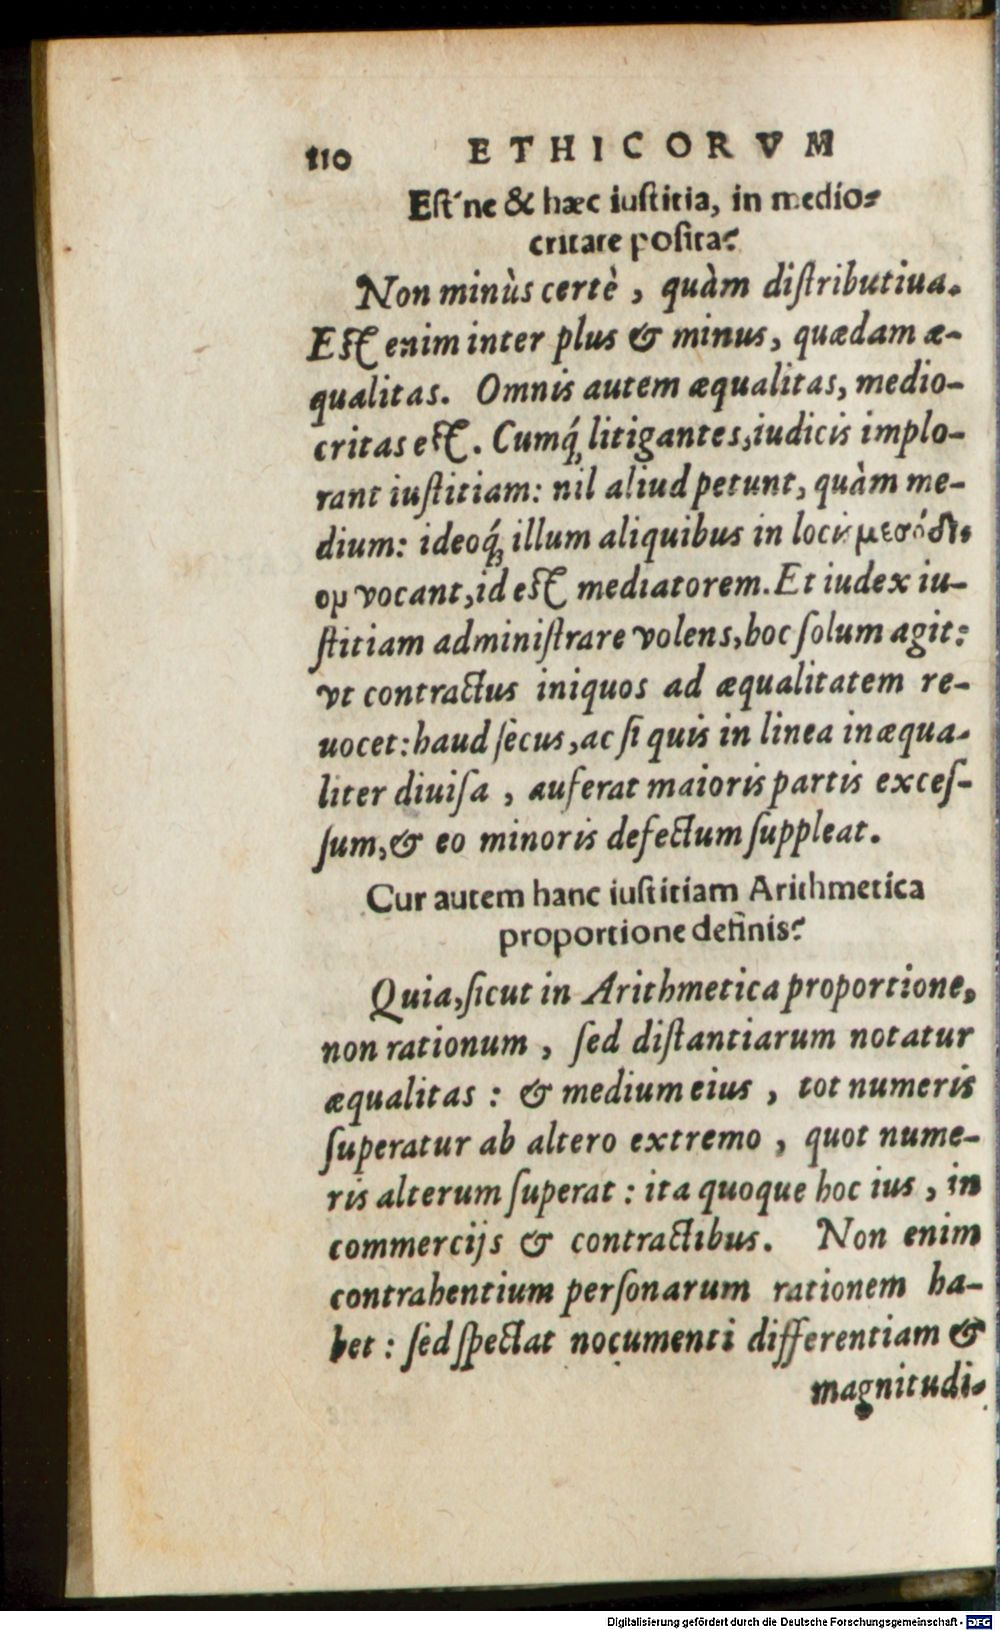 110 ETHICORVM
Eſt'ne & hæc iuſtitia, in medio-
critate poſita?
Non minùs certè, quàm diſtributiua.
Eſt enim inter plus & minus, quædam æ-
qualitas. Omnis autem æqualitas, medio-
critas eſt. Cumq́; litigantes, iudicis implo-
rant iuſtitiam: nil aliud petunt, quàm me-
dium: ideoq́; illum aliquibus in locis μεσόδι-
ομ vocant, id eſt mediatorem. Et iudex iu-
ſtitiam adminiſtrare volens, hoc ſolum agit:
vt contractus iniquos ad æqualitatem re-
uocet: haud ſecus, ac ſi quis in linea inæqua-
liter diuiſa, auferat maioris partis exceſ-
ſum, & eo minoris defectum ſuppleat.
Cur autem hanc iuſtitiam Arithmetica
proportione definis?
Quia, ſicut in Arithmetica proportione,
non rationum, ſed diſtantiarum notatur
æqualitas: & medium eius, tot numeris
ſuperatur ab altero extremo, quot nume-
ris alterum ſuperat: ita quoque hoc ius, in
commercijs & contractibus. Non enim
contrahentium perſonarum rationem ha-
bet: ſed ſpectat nocumenti differentiam &
magnitudi-
Digitalisierung gefördert durch die Deutsche Forschungsgemeinschaft - DFG